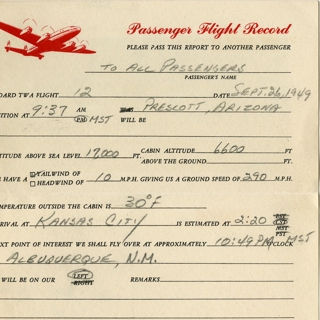 Passenger Flight Record
PLEASE PASS THIS REPORT TO ANOTHER PASSENGER
TO ALL PASSENGERS
PASSENGER'S NAME
OARD TWA FLIGHT 12 DATE SEPT. 26, 1949
SITION AT 9:37 AM PM MST WILL BE PRESCOTT, ARIZONA
TITUDE ABOVE SEA LEVEL 17,000 FT. CABIN ALTITUDE 6600 FT
ABOVE THE GROUND FT.
E HAVE A TAILWIND OF HEADWIND OF 10 M.P.H. GIVING US A GROUND SPEED OF 290 M.P.H.
MPERATURE OUTSIDE THE CABIN IS 30°F
RIVAL AT KANSAS CITY IS ESTIMATED AT 2:20 CST MST PST
EXT POINT OF INTEREST WE SHALL FLY OVER AT APPROXIMATELY 10:49 PM MST O'CLOCK
ALBUQUERQUE, N.M.
WILL BE ON OUR LEFT RIGHT REMARKS